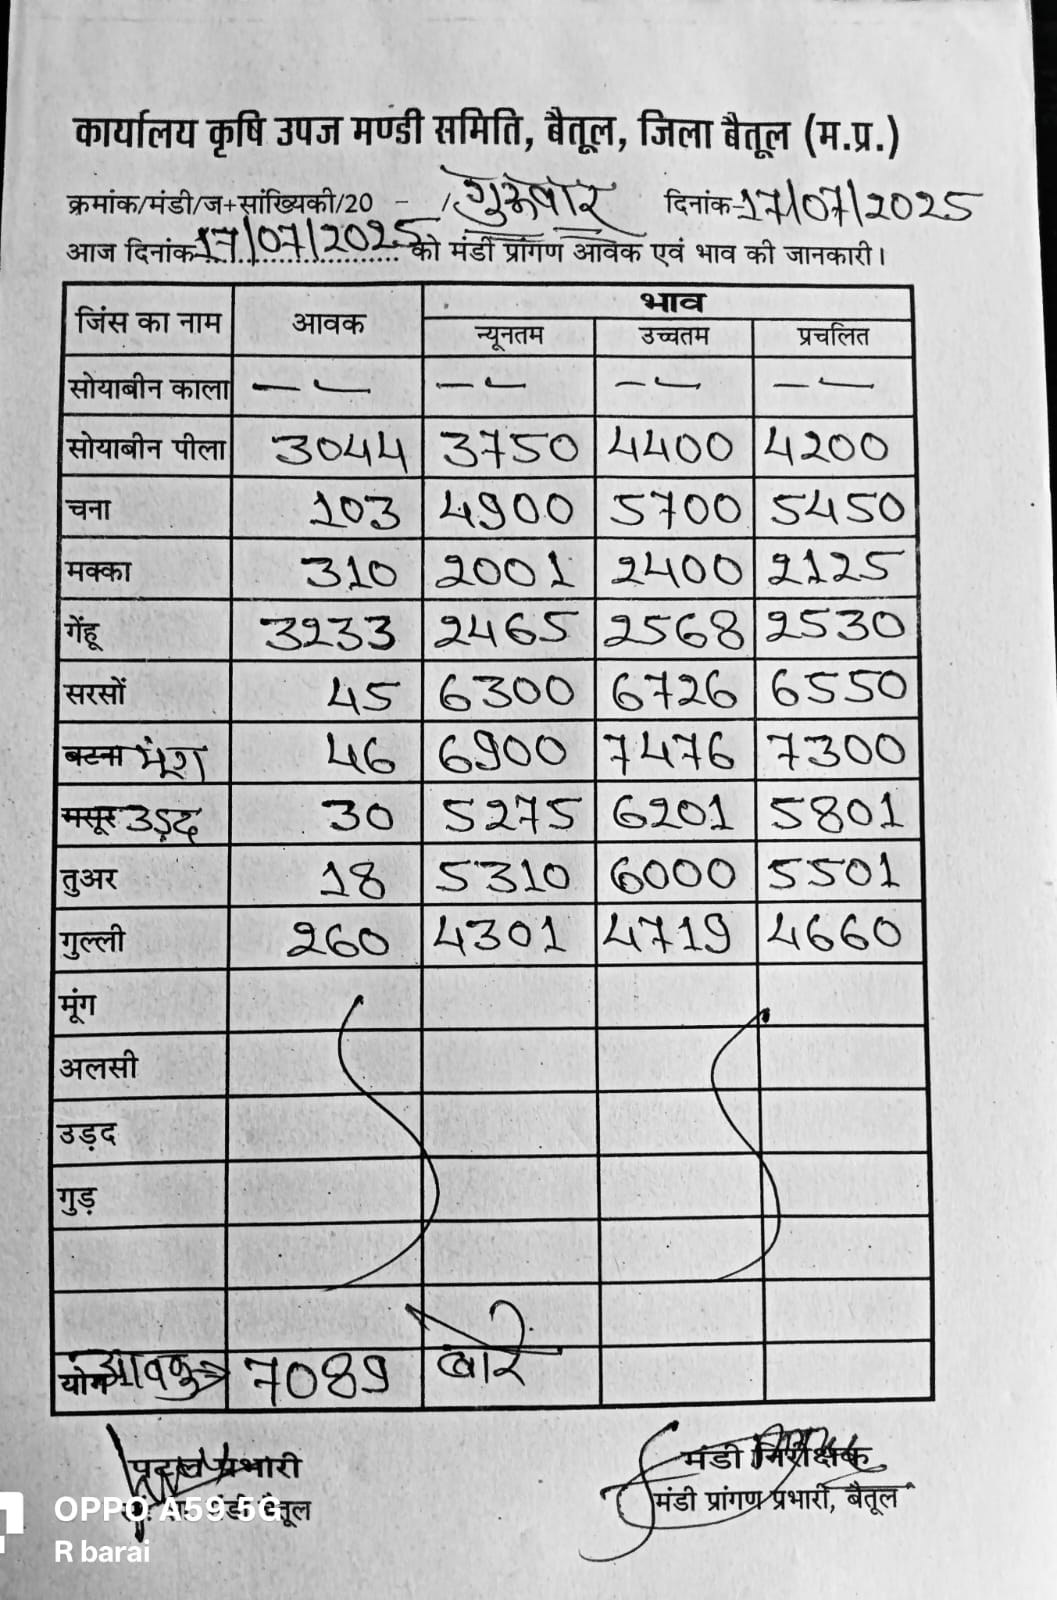 कार्यालय कृषि उपज मण्डी समिति, बैतूल, जिला बैतूल (म.प्र.)
क्रमांक/मंडी/ज+सांख्यिकी/20 - / गुरूवार दिनांक-17/07/2025
आज दिनांक 17/07/2025 को मंडी प्रांगण आवक एवं भाव की जानकारी।
जिंस का नाम आवक भाव
न्यूनतम उच्चतम प्रचलित
सोयाबीन काला — — — — — — — —
सोयाबीन पीला 3044 3750 4400 4200
चना 103 4900 5700 5450
मक्का 310 2001 2400 2125
गेंहू 3233 2465 2568 2530
सरसों 45 6300 6726 6550
बटना मूंग 46 6900 7476 7300
मसूर उड़द 30 5275 6201 5801
तुअर 18 5310 6000 5501
गुल्ली 260 4301 4719 4660
मूंग
अलसी
उड़द
गुड़
योग आवक 7089 बोरे
प्रभारी मंडी निरीक्षक
मंडी बैतूल मंडी प्रांगण प्रभारी, बैतूल
OPPO A59 5G
R barai